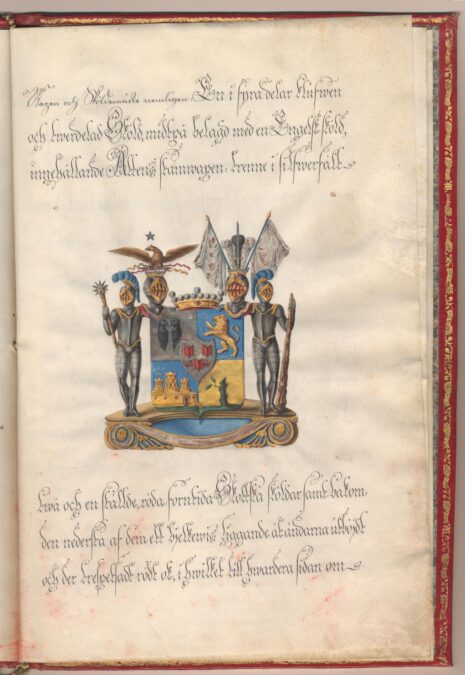 Wapen och Sköldemärke nemligen: En i fyra delar klufwen
och twerdelad Sköld, midtpå belagd med en Engelsk sköld,
innehållande Ättens stamwapen: trenne i silfwerfält
twå och en ställde, röda forntida Skottska sköldar samt bakom
den nedersta af dem ett hjelkewis liggande åt ändarna utböjdt
och der trespetsadt rödt ok, i hwilket till hwardera sidan om